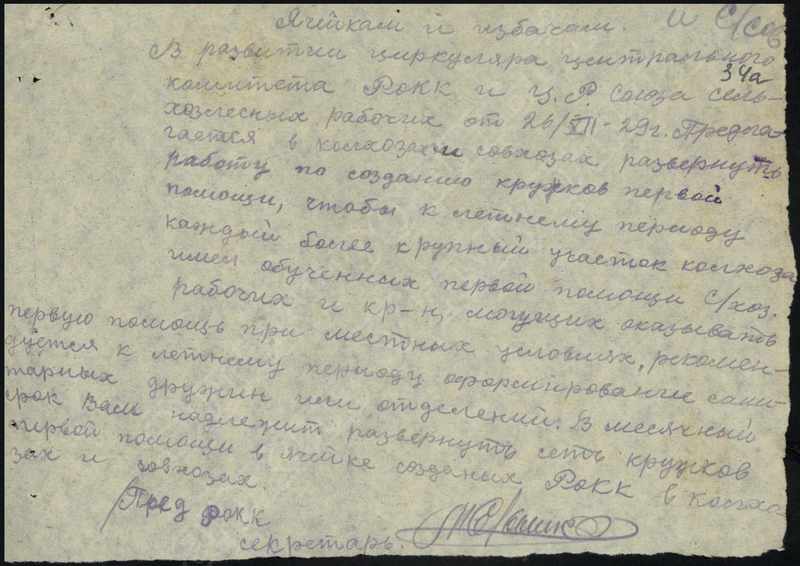 Ячейкам и избачам. и С/сов
В развитии циркуляра центрального
34а
комитета РОКК и Ц.Р. Союза сель-
хозлесных рабочих от 26/XII-29г. Предла-
гается в колхозах и совхозах развернуть
работу по созданию кружков первой
помощи, чтобы к летнему периоду
каждый более крупный участок колхоза
имел обученных первой помощи с/хоз.
рабочих и кр-н, могущих оказывать
первую помощь при местных условиях, рекомен-
дуется к летнему периоду оформирование сани-
тарных дружин или отделений. В месячный
срок Вам надлежит развернуть сеть кружков
первой помощи в ячейке созданых РОКК в колхо-
зах и совхозах.
Пред РОКК
секретарь.